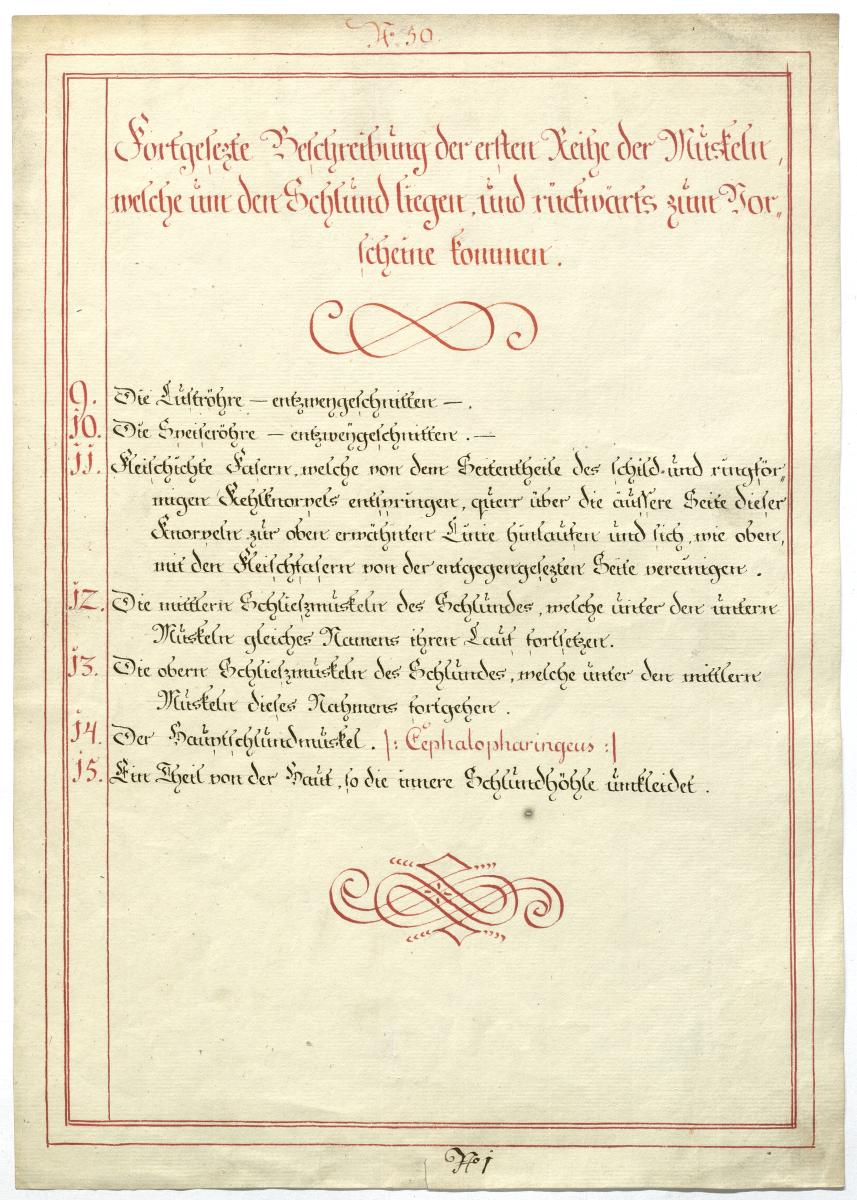 No. 50.
Fortgesezte Beschreibung der ersten Reihe der Muskeln,
welche um den Schlund liegen, und rückwärts zum Vor-
scheine kommen.
9. Die Luftröhre — entzweygeschnitten —.
10. Die Speiseröhre — entzweygeschnitten. —
11. Fleischichte Fasern, welche von dem Seitentheile des schild- und ringför-
migen Kehlknorpels entspringen, querr über die äussere Seite dieser
Knorpeln zur oben erwähnten Linie hinlaufen und sich, wie oben,
mit den Fleischfasern von der entgegengesezten Seite vereinigen.
12. Die mittlern Schließmuskeln des Schlundes, welche unter den untern
Muskeln gleiches Namens ihren Lauf fortsetzen.
13. Die obern Schließmuskeln des Schlundes, welche unter den mittlern
Muskeln dieses Nahmens fortgehen.
14. Der Hauptschlundmuskel. |: Cephalopharingeus :|
15. Ein Theil von der Haut, so die innere Schlundhöhle umkleidet.
No 1